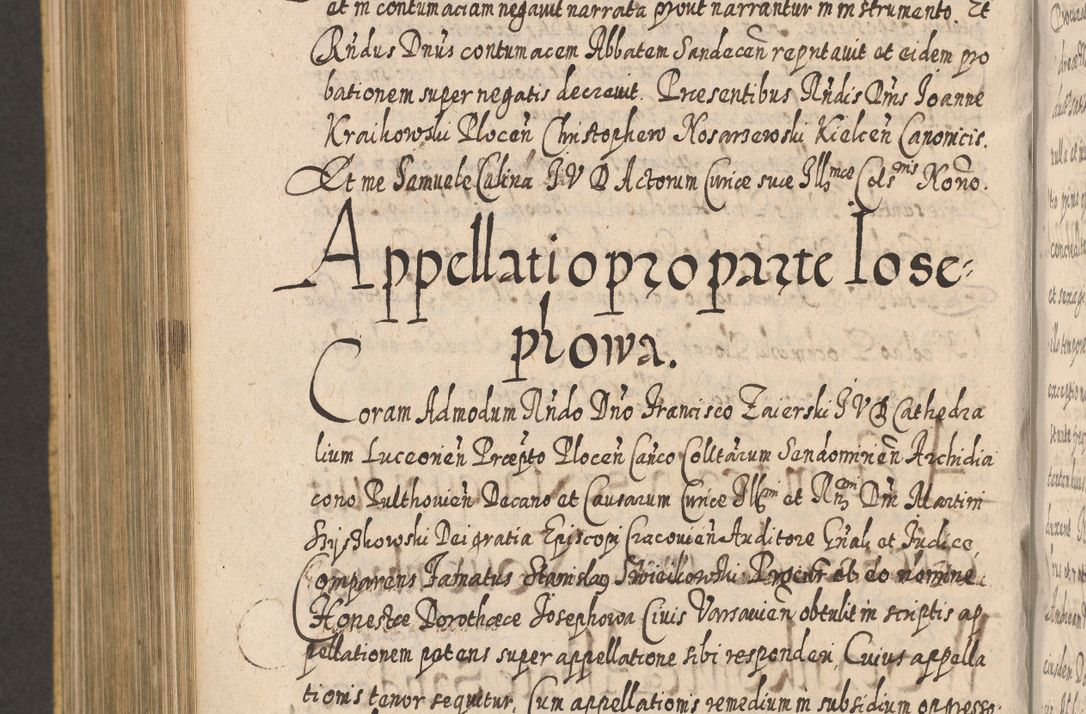 et in contumaciam negavit narrata prout narrantur in instrumento. Et
Rndus Dnus contumacem Abbatem Sandecen̄ reputavit et eidem pro
bationem super negatis decrevit. Præsentibus Rndis Dnis Joanne
Kraikowski Plocen̄ Christophero Kosarzewski Kielcen̄ Canonicis.
Et me Samuele Calina J V D Actorum Curiæ suæ Illmæ Celsnis Notrio.
Appellatio pro parte Iose-
phowa.
Coram Admodum Rndo Dno Francisco Zaierski J V D Cathedra
lium Luceorien̄ Præpto Plocen̄ Canco Colltarum Sendomirien̄ Archidia
cono Pulthovien̄ Decano et Causarum Curiæ Illmi et Rmi Dni Martini
Szyszkowski Dei gratia Episcopi Cracovien̄ Auditore Gnali et Judice,
Comparens Famatus Stanislaus Procur et eo nomine
Honestæ Dorotheæ Josephowa Civis Varsavien̄ obtulit in scriptis ap
pellationem petens super appellatione sibi responderi, Cuius appella
tionis tenor sequitur. Cum appellationis remedium in subsidium oppresso